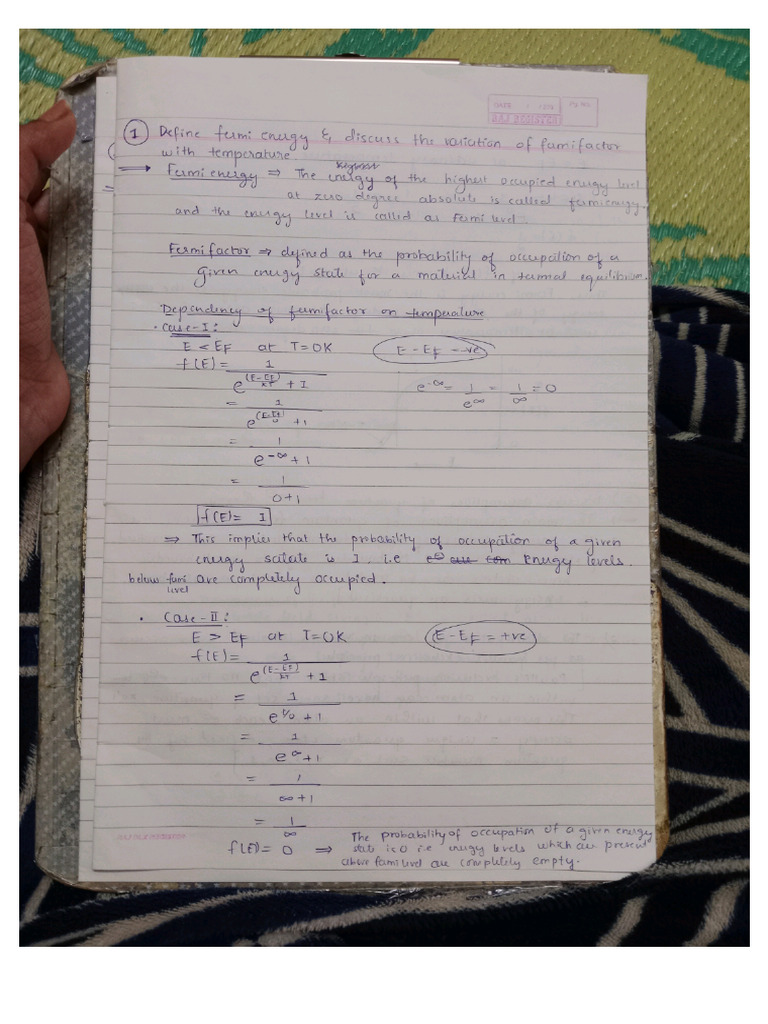 DATE : / /201
PG NO.
RAJ REGISTER
① Define fermi energy & discuss the variation of fermifactor
with temperature.
→ Fermi energy ⇒ The energy of the highest occupied energy level
at zero degree absolute is called fermienergy.
and the energy level is called as Fermi level
Fermifactor ⇒ defined as the probability of occupation of a
given energy state for a material in termal equilibrium.
Dependency of fermifactor on temperature
• Case-I:
E < EF at T=0K E - EF = -ve
f(E) = 1 / e^((E-EF)/KT) + 1
e^-∞ = 1/e^∞ = 1/∞ = 0
= 1 / e^((E-EF)/0) + 1
= 1 / e^-∞ + 1
= 1 / 0+1
f(E) = 1
⇒ This implies that the probability of occupation of a given
energy satate is 1, i.e energy levels.
below fermi level are completely occupied.
• Case-II:
E > EF at T=0K E - EF = +ve
f(E) = 1 / e^((E-EF)/KT) + 1
= 1 / e^(1/0) + 1
= 1 / e^∞ + 1
= 1 / ∞+1
= 1/∞
f(E) = 0 ⇒ The probability of occupation of a given energy
state is 0 i.e energy levels which are present
above fermi level are completely empty.